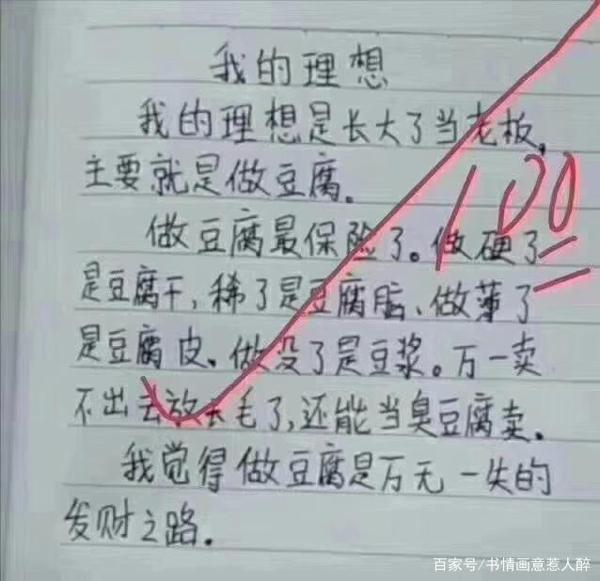 我的理想
我的理想是长大了当老板,
主要就是做豆腐。
做豆腐最保险了。做硬了
是豆腐干,稀了是豆腐脑、做薄了
是豆腐皮、做没了是豆浆。万一卖
不出去放长毛了,还能当臭豆腐卖。
我觉得做豆腐是万无一失的
发财之路.
100
百家号/书情画意惹人醉